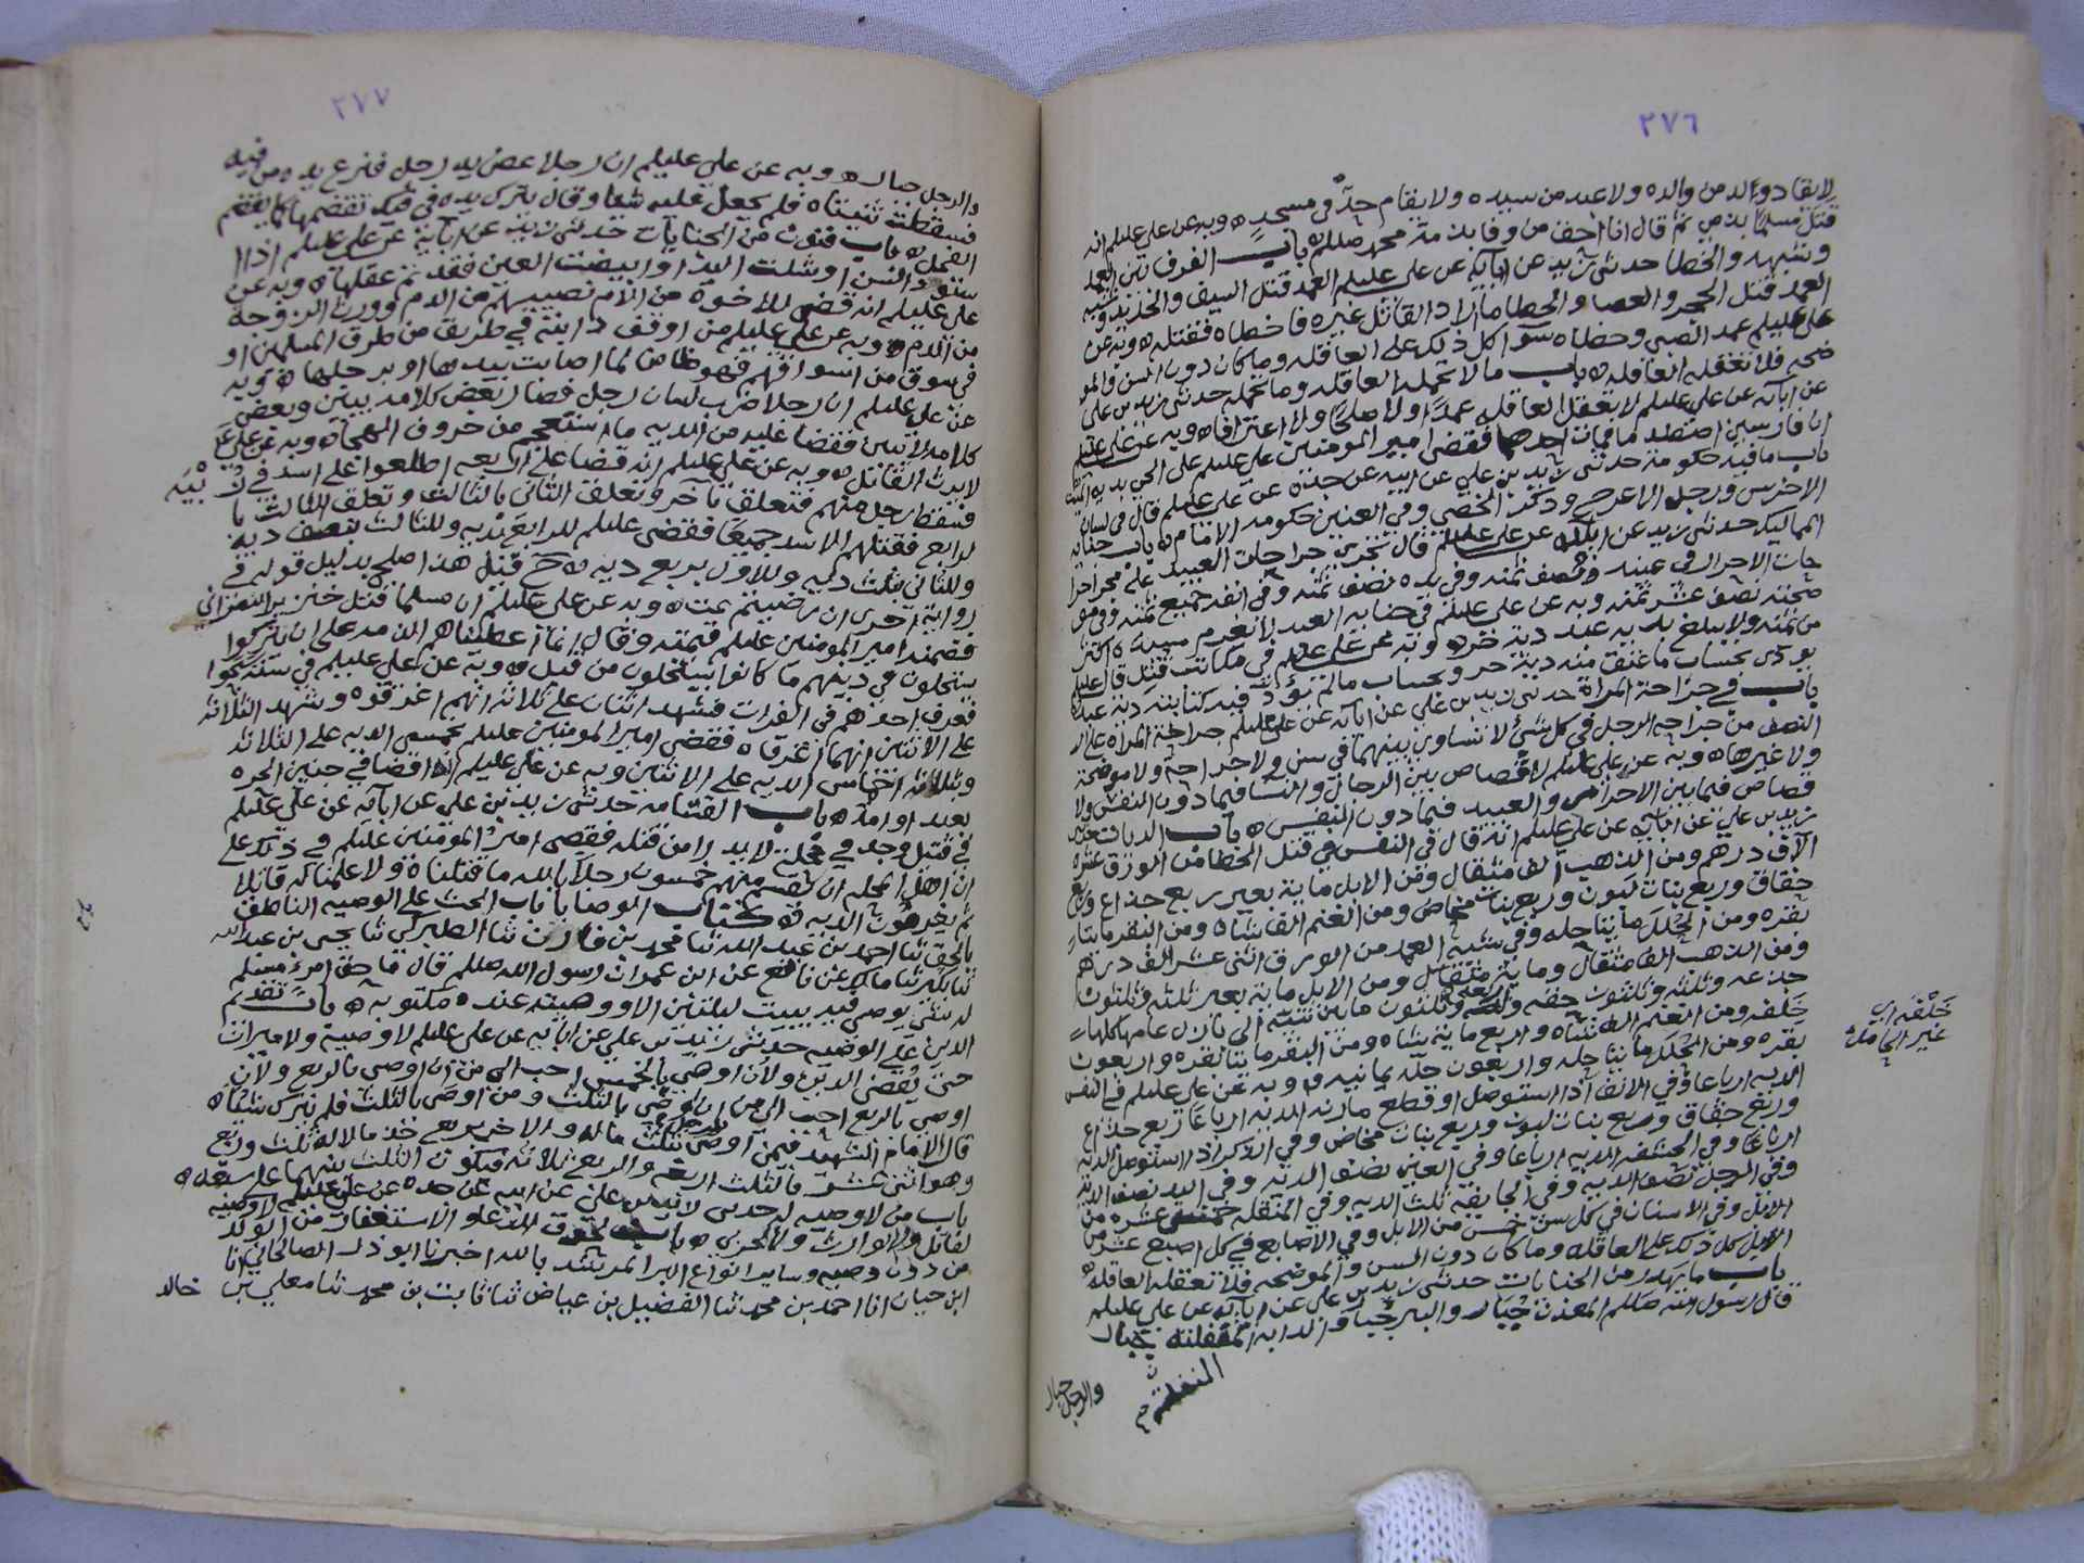 ٢٧٦
لا يقاد والد من والده ولا عبد من سيده ولا يقام حد في مسجد ه وبه عن علي عليلم انه
قتل مسلما بذمي ثم قال انا احق من وفا بذمة محمد صللم ه باب الفرق بين العمد
وشبهه والخطا حدثني زيد عن ابآئه عن علي عليلم العمد قتل السيف والحديد وشبه
العمد قتل الحجر والعصا والخطا ما اراد القاتل غيره فاخطاه فقتله ه وبه عن
علي عليلم عمد الصبي وخطاه سوآ كل ذلك على العاقله وما كان دون السن والمو
ضحه فلا تعقله العاقله ه باب ما لا تحمله العاقله وما تحمله حدثني زيد بن علي
عن ابآئه عن علي عليلم لا تعقل العاقله عمدًا ولا صلحًا ولا اعترافا ه وبه عن علي عليلم
ان فارسين اصطدما فمات احدهما فقضى امير المومنين علي عليلم على الحي بدية الميت
باب ما فيه حكومة حدثني زيد بن علي عن ابيه عن جده عن علي عليلم قال في لسان
الاخرس ورجل الاعرج وذكر الخصي وفي العنين حكومة الامام ه باب جناية
المماليك حدثني زيد عن ابآئه عن علي عليلم قال تجري جراحات العبيد على مجرا جرا
حات الاحرار في عينه نصف ثمنه وفي يده نصف ثمنه وفي انفه جميع ثمنه وفي مو
ضحته نصف عشر ثمنه وبه عن علي عليلم في جناية العبد لا يغرم سيده اكثر
من ثمنه ولا يبلغ بدية عبد دية حر ه وبه عن علي عليلم في مكاتب قتل قال عليلم
يودى بحساب ما عتق منه دية حر وبحساب ما لم يؤدّ فيه كتابته دية عبد
باب في جراحة المراة حدثني زيد بن علي عن ابآئه عن علي عليلم جراحة المراه على
النصف من جراحة الرجل في كل شئ لا تساوي بينهما في سن ولا جراحة ولا موضحة
ولا غيرها ه وبه عن علي عليلم لا قصاص بين الرجال والنسآ فيما دون النفس ولا
قصاص فيما بين الاحرار والعبيد فيما دون النفس ه باب الديات حدثني
زيد بن علي عن ابآئه عن علي عليلم انه قال في النفس في قتل الخطا من الورق عشرة
آلاف درهم ومن الذهب الف مثقال ومن الابل ماية بعير ربع جذاع وربع
حقاق وربع بنات لبون وربع بنات مخاض ومن الغنم الفا شاه ومن البقر مايتا
بقره ومن الحلل مايتا حله وفي شبه العمد من الورق اثني عشر الف درهم
ومن الذهب الف مثقال ومايتا مثقال ومن الابل ماية بعير ثلثه وثلثون
جذعه وثلثه وثلثون حقه واربعة وثلثون ما بين ثنيه الى بازل عامها كلها
خلفه ومن الغنم الفا شاه واربع ماية شاه ومن البقر مايتا بقره واربعون
بقره ومن الحلل مايتا حله واربعون حلة يمانيه ه وبه عن علي عليلم في النفس
الديه ارباعا وفي الانف اذا استوصل او قطع مارنه الديه ارباعا ربع جذاع
وربع حقاق وربع بنات لبون وربع بنات مخاض وفي الذكر اذا استوصل الديه
ارباعًا وفي الحشفه الديه ارباعا وفي العين نصف الديه وفي اليد نصف الدية
وفي الرجل نصف الديه وفي الجايفة ثلث الديه وفي المنقله خمس عشره من
الابل وفي الاسنان في كل سن خمس من الابل وفي الاصابع في كل اصبع عشر من
الابل كل ذلك على العاقله وما كان دون السن والموضحه فلا تعقله العاقله ه
باب ما يهدر من الجنايات حدثني زيد بن علي عن ابآئه عن علي عليلم
قال رسول الله صللم المعدن جبار والبير جبار والدابه المنفلته جبار
المنفلته
والرجل جبار
خَلْفَه اي
غير الحامل
٢٧٧
والرجل جبار ه وبه عن علي عليلم ان رجلا عض يد رجل فنزع يده من فيه
فسقطت ثنيتاه فلم يجعل عليه شيئا وقال يترك يده في فيك تقضمها كما يقضم
الفحل ه باب فنون من الجنايات حدثني زيد عن ابآئه عن علي عليلم اذا ا
سودّ السن او شلت اليد او ابيضت العين فقد تم عقلها ه وبه عن
علي عليلم انه قضى للاخوة من الام نصيبهم من الدم وورث الزوجة
من الدم ه وبه عن علي عليلم من اوقف دابته في طريق من طرق المسلمين او
في سوق من اسواقهم فهو ضامن لما اصابت بيدها او برجلها ه وبه
عن علي عليلم ان رجلا ضرب لسان رجل فصار بعض كلامه يبين وبعض
كلامه لا يبين فقضا عليه من الديه ما استعجم من حروف الهجآ ه وبه عن علي عليلم
لا يرث القاتل ه وبه عن علي عليلم انه قضا على اربعه اطلعوا على اسد في زُ بْيَه
فسقط رجل منهم فتعلق بآخر وتعلق الثاني بالثالث وتعلق الثالث با
لرابع فقتلهم الاسد جميعًا فقضى عليلم للرابع بديه وللثالث بنصف ديه
وللثاني بثلث ديه وللاول بربع ديه ه قيل هذا صلح بدليل قوله في
رواية اخرى ان رضيتم تمت ه وبه عن علي عليلم ان مسلما قتل خنزيرا لنصراني
فضمنه امير المومنين عليلم قيمته وقال انما اعطيناهم الذمه على ان يتركوا
يستحلون في دينهم ما كانوا يستحلون من قبل ه وبه عن علي عليلم في ستة
فغرق احدهم في الفرات فشهد اثنان على ثلاثه انهم اغرقوه وشهد الثلاثه
على الاثنين انهما اغرقاه فقضى امير المومنين عليلم بخمسي الديه على الثلاثه
وثلاثة اخماس الديه على الاثنين وبه عن علي عليلم انه قضا في جنين الحره
بعبد او امة ه باب القسامه حدثني زيد بن علي عن ابآئه عن علي عليلم
في قتيل وجد في محلة لا يدرا من قتله فقضى امير المومنين عليلم في ذلك على
ان اهل المحله ان يقسم منهم خمسون رجلا بالله ما قتلناه ولا علمنا له قاتلا
ثم يغرمون الديه ه كتاب الوصايا باب الحث على الوصيه الناطق
بالحق ثنا احمد بن عبد الله ثنا محمد بن فارث ثنا الطبركي ثنا يحيى بن عبد الله
بن بكير ثنا مالك عن نافع عن ابن عمر ان رسول الله صللم قال ما حق امرء مسلم
له شئ يوصي فيه يبيت ليلتين الا ووصيته عنده مكتوبه ه باب تقديم
الدين على الوصيه حدثني زيد بن علي عن ابآئه عن علي عليلم لا وصية ولا ميراث
حتى يقضى الدين ولان اوصي بالخمس احب الي من ان اوصي بالربع ولان
اوصي بالربع احب الي من ان اوصي بالثلث ومن اوصى بالثلث فلم يترك شيئا ه
قال الامام الشهيد فيمن اوصى لرجل بثلث ماله ولاخر بربع خذ مالا له ثلث وربع
وهو اثني عشر فالثلث اربعه والربع ثلاثه فيكون الثلث بينهما على سبعه ه
باب من لا وصيه له حدثني زيد بن علي عن ابيه عن جده عن علي عليلم لا وصيه
لقاتل ولا لوارث ولا لحربي ه باب لحوق الدعاء والاستغفار من الولد
من دون وصيه وساير انواع البر المرشد بالله اخبرنا ابو ذر الصالحاني انا
ابن حيان انا احمد بن محمد ثنا الفضيل بن عياض ثنا ثابت بن محمد ثنا معلى بن خالد